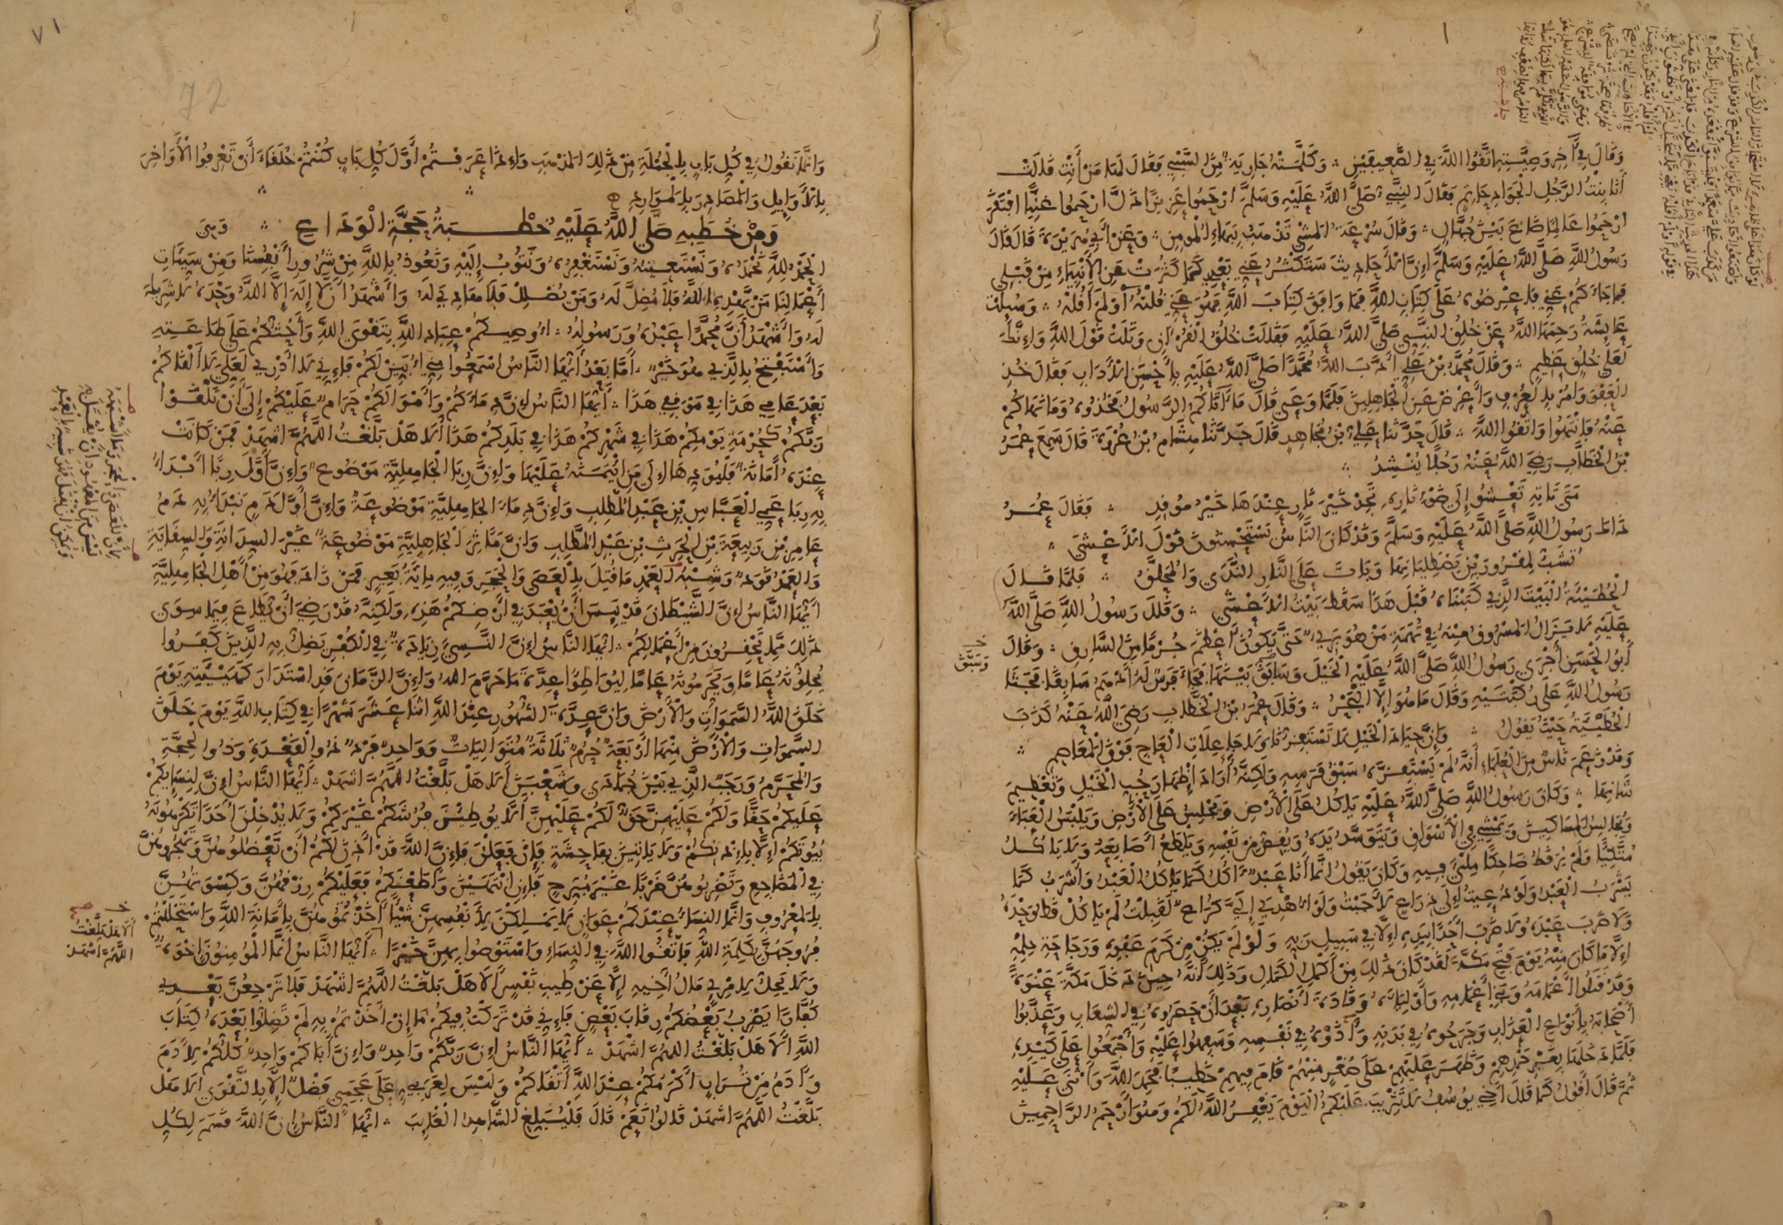 وَقَالَ فِي آخِرِ وَصِيَّتِهِ اتَّقُوا اللَّهَ فِي الضَّعِيفَيْنِ وَكَلَّمَتْهُ جَارِيَةٌ مِنَ السَّبْيِ فَقَالَ لَهَا مَنْ أَنْتِ قَالَتْ
أَنَا بِنْتُ الرَّجُلِ الْجَوَادِ حَاتِمٍ فَقَالَ النَّبِيُّ صَلَّى اللَّهُ عَلَيْهِ وَسَلَّمَ ارْحَمُوا عَزِيزًا ذَلَّ ارْحَمُوا غَنِيًّا افْتَقَرَ
ارْحَمُوا عَالِمًا ضَاعَ بَيْنَ جُهَّالٍ وَقَالَ سُرْعَةُ الْمَشْيِ تَذْهَبُ بِبَهَاءِ الْمُؤْمِنِ وَعَنْ أَبِي هُرَيْرَةَ قَالَ قَالَ
رَسُولُ اللَّهِ صَلَّى اللَّهُ عَلَيْهِ وَسَلَّمَ إِنَّ الْأَحَادِيثَ سَتَكْثُرُ عَنِّي بَعْدِي كَمَا كَثُرَتْ عَنِ الْأَنْبِيَاءِ مِنْ قَبْلِي
فَمَا جَاءَكُمْ عَنِّي فَاعْرِضُوهُ عَلَى كِتَابِ اللَّهِ فَمَا وَافَقَ كِتَابَ اللَّهِ فَهُوَ عَنِّي قُلْتُهُ أَوْ لَمْ أَقُلْهُ وَسُئِلَتْ
عَائِشَةُ رَحِمَهَا اللَّهُ عَنْ خُلُقِ النَّبِيِّ صَلَّى اللَّهُ عَلَيْهِ فَقَالَتْ خُلُقُهُ الْقُرْآنُ وَتَلَتْ قَوْلَ اللَّهِ وَإِنَّكَ
لَعَلَى خُلُقٍ عَظِيمٍ وَقَالَ مُحَمَّدُ بْنُ عَلِيٍّ أَدَّبَ اللَّهُ مُحَمَّدًا صَلَّى اللَّهُ عَلَيْهِ بِأَحْسَنِ الْآدَابِ فَقَالَ خُذِ
الْعَفْوَ وَأْمُرْ بِالْعُرْفِ وَأَعْرِضْ عَنِ الْجَاهِلِينَ فَلَمَّا وَعَى قَالَ مَا آتَاكُمُ الرَّسُولُ فَخُذُوهُ وَمَا نَهَاكُمْ
عَنْهُ فَانْتَهُوا وَاتَّقُوا اللَّهَ قَالَ حَدَّثَنَا عَلِيُّ بْنُ مُجَاهِدٍ قَالَ حَدَّثَنَا هِشَامُ بْنُ عُرْوَةَ قَالَ سَمِعَ عُمَرُ
بْنُ الْخَطَّابِ رَضِيَ اللَّهُ عَنْهُ رَجُلًا يُنْشِدُ
مَتَى تَأْتِهِ تَعْشُو إِلَى ضَوْءِ نَارِهِ تَجِدْ خَيْرَ نَارٍ عِنْدَهَا خَيْرُ مُوقِدِ فَقَالَ عُمَرُ
ذَاكَ رَسُولُ اللَّهِ صَلَّى اللَّهُ عَلَيْهِ وَسَلَّمَ وَقَدْ كَانَ النَّاسُ يَسْتَحْسِنُونَ قَوْلَ الْأَعْشَى
تُشَبُّ لِمَقْرُورَيْنِ يَصْطَلِيَانِهَا وَبَاتَ عَلَى النَّارِ النَّدَى وَالْمُحَلَّقُ فَلَمَّا قَالَ
الْحُطَيْئَةُ الْبَيْتَ الَّذِي كَتَبْنَاهُ قَبْلَ هَذَا سَقَطَ بَيْتُ الْأَعْشَى وَقَالَ رَسُولُ اللَّهِ صَلَّى اللَّهُ
عَلَيْهِ لَا يَزَالُ الْمَسْرُوقُ مِنْهُ فِي تُهَمَةِ مَنْ هُوَ بَرِيءٌ حَتَّى يَكُونَ أَعْظَمَ جُرْمًا مِنَ السَّارِقِ وَقَالَ
أَبُو الْحَسَنِ أَجْرَى رَسُولُ اللَّهِ صَلَّى اللَّهُ عَلَيْهِ الْخَيْلَ وَسَابَقَ بَيْنَهَا فَجَاءَ فَرَسٌ لَهُ أَدْهَمُ سَابِقًا فَجَثَا
رَسُولُ اللَّهِ عَلَى رُكْبَتَيْهِ وَقَالَ مَا هُوَ إِلَّا الْبَحْرُ وَقَالَ عُمَرُ بْنُ الْخَطَّابِ رَضِيَ اللَّهُ عَنْهُ كَذَبَ
الْحُطَيْئَةُ حَيْثُ يَقُولُ وَإِنَّ جِيَادَ الْخَيْلِ لَا تَسْتَفِزُّنَا وَلَا جَاعِلَاتِ الْعَاجِ فَوْقَ الْمَعَاصِمِ
وَقَدْ زَعَمَ نَاسٌ مِنَ الْعُلَمَاءِ أَنَّهُ لَمْ يَسْتَفِزَّهُ سَبْقُ فَرَسِهِ وَلَكِنَّهُ أَرَادَ إِظْهَارَ حُبِّ الْخَيْلِ وَتَعْظِيمِ
شَأْنِهَا وَكَانَ رَسُولُ اللَّهِ صَلَّى اللَّهُ عَلَيْهِ يَأْكُلُ عَلَى الْأَرْضِ وَيَجْلِسُ عَلَى الْأَرْضِ وَيَلْبَسُ الْعَبَاءَ
وَيُجَالِسُ الْمَسَاكِينَ وَيَمْشِي فِي الْأَسْوَاقِ وَيَتَوَسَّدُ يَدَهُ وَيُقِصُّ مِنْ نَفْسِهِ وَيَلْطَعُ أَصَابِعَهُ وَلَا يَأْكُلُ
مُتَّكِئًا وَلَمْ يُرَ قَطُّ ضَاحِكًا مِلْءَ فِيهِ وَكَانَ يَقُولُ إِنَّمَا أَنَا عَبْدٌ آكُلُ كَمَا يَأْكُلُ الْعَبْدُ وَأَشْرَبُ كَمَا
يَشْرَبُ الْعَبْدُ وَلَوْ دُعِيتُ إِلَى ذِرَاعٍ لَأَجَبْتُ وَلَوْ أُهْدِيَ إِلَيَّ كُرَاعٌ لَقَبِلْتُ لَمْ يَأْكُلْ قَطُّ وَحْدَهُ
وَلَا ضَرَبَ عَبْدَهُ وَلَا ضَرَبَ أَحَدًا بِيَدِهِ إِلَّا فِي سَبِيلِ رَبِّهِ وَلَوْ لَمْ يَكُنْ مِنْ كَرَمِ عَفْوِهِ وَرَجَاحَةِ حِلْمِهِ
إِلَّا مَا كَانَ مِنْهُ يَوْمَ فَتْحِ مَكَّةَ لَقَدْ كَانَ ذَلِكَ مِنْ أَكْمَلِ الْكَمَالِ وَذَلِكَ أَنَّهُ حِينَ دَخَلَ مَكَّةَ عَنْوَةً
وَقَدْ قَتَلُوا أَعْمَامَهُ وَبَنِي أَعْمَامِهِ وَأَوْلِيَاءَهُ وَقَادَةَ أَنْصَارِهِ بَعْدَ أَنْ حَصَرُوهُ فِي الشِّعَابِ وَعَذَّبُوا
أَصْحَابَهُ بِأَنْوَاعِ الْعَذَابِ وَجَرَحُوهُ فِي بَدَنِهِ وَآذَوْهُ فِي نَفْسِهِ وَسَفَّهُوا عَلَيْهِ وَأَجْمَعُوا عَلَى كَيْدِهِ
فَلَمَّا دَخَلَهَا بِغَيْرِ حَمْدِهِمْ وَظَهَرَ عَلَيْهِمْ عَلَى صُغْرٍ مِنْهُمْ قَامَ فِيهِمْ خَطِيبًا فَحَمِدَ اللَّهَ وَأَثْنَى عَلَيْهِ
ثُمَّ قَالَ أَقُولُ كَمَا قَالَ أَخِي يُوسُفُ لَا تَثْرِيبَ عَلَيْكُمُ الْيَوْمَ يَغْفِرُ اللَّهُ لَكُمْ وَهُوَ أَرْحَمُ الرَّاحِمِينَ
٧١
72
وَإِنَّمَا نَقُولُ فِي كُلِّ بَابٍ بِالْجُمْلَةِ مِنْ ذَلِكَ الْمَذْهَبِ وَإِذَا عَرَفْتُمْ أَوَّلَ كُلِّ بَابٍ كُنْتُمْ خُلَقَاءَ أَنْ تَعْرِفُوا الْأَوَاخِرَ
بِالْأَوَائِلِ وَالْمَصَادِرَ بِالْمَوَارِدِ
وَمِنْ خُطَبِهِ صَلَّى اللَّهُ عَلَيْهِ خُطْبَةُ حَجَّةِ الْوَدَاعِ وَهِيَ
الْحَمْدُ لِلَّهِ نَحْمَدُهُ وَنَسْتَعِينُهُ وَنَسْتَغْفِرُهُ وَنَتُوبُ إِلَيْهِ وَنَعُوذُ بِاللَّهِ مِنْ شُرُورِ أَنْفُسِنَا وَمِنْ سَيِّئَاتِ
أَعْمَالِنَا مَنْ يَهْدِهِ اللَّهُ فَلَا مُضِلَّ لَهُ وَمَنْ يُضْلِلْ فَلَا هَادِيَ لَهُ وَأَشْهَدُ أَنْ لَا إِلَهَ إِلَّا اللَّهُ وَحْدَهُ لَا شَرِيكَ
لَهُ وَأَشْهَدُ أَنَّ مُحَمَّدًا عَبْدُهُ وَرَسُولُهُ أُوصِيكُمْ عِبَادَ اللَّهِ بِتَقْوَى اللَّهِ وَأَحُثُّكُمْ عَلَى طَاعَتِهِ
وَأَسْتَفْتِحُ بِالَّذِي هُوَ خَيْرٌ أَمَّا بَعْدُ أَيُّهَا النَّاسُ اسْمَعُوا مِنِّي أُبَيِّنْ لَكُمْ فَإِنِّي لَا أَدْرِي لَعَلِّي لَا أَلْقَاكُمْ
بَعْدَ عَامِي هَذَا فِي مَوْقِفِي هَذَا أَيُّهَا النَّاسُ إِنَّ دِمَاءَكُمْ وَأَمْوَالَكُمْ حَرَامٌ عَلَيْكُمْ إِلَى أَنْ تَلْقَوْا
رَبَّكُمْ كَحُرْمَةِ يَوْمِكُمْ هَذَا فِي شَهْرِكُمْ هَذَا فِي بَلَدِكُمْ هَذَا أَلَا هَلْ بَلَّغْتُ اللَّهُمَّ اشْهَدْ فَمَنْ كَانَتْ
عِنْدَهُ أَمَانَةٌ فَلْيُؤَدِّهَا إِلَى مَنِ ائْتَمَنَهُ عَلَيْهَا وَإِنَّ رِبَا الْجَاهِلِيَّةِ مَوْضُوعٌ وَإِنَّ أَوَّلَ رِبًا أَبْدَأُ
بِهِ رِبَا عَمِّي الْعَبَّاسِ بْنِ عَبْدِ الْمُطَّلِبِ وَإِنَّ دِمَاءَ الْجَاهِلِيَّةِ مَوْضُوعَةٌ وَإِنَّ أَوَّلَ دَمٍ نَبْدَأُ بِهِ دَمُ
عَامِرِ بْنِ رَبِيعَةَ بْنِ الْحَرِثِ بْنِ عَبْدِ الْمُطَّلِبِ وَإِنَّ مَآثِرَ الْجَاهِلِيَّةِ مَوْضُوعَةٌ غَيْرَ السِّدَانَةِ وَالسِّقَايَةِ
وَالْعَمْدُ قَوَدٌ وَشِبْهُ الْعَمْدِ مَا قُتِلَ بِالْعَصَى وَالْحَجَرِ وَفِيهِ مِائَةُ بَعِيرٍ فَمَنْ زَادَ فَهُوَ مِنْ أَهْلِ الْجَاهِلِيَّةِ
أَيُّهَا النَّاسُ إِنَّ الشَّيْطَانَ قَدْ يَئِسَ أَنْ يُعْبَدَ فِي أَرْضِكُمْ هَذِهِ وَلَكِنَّهُ قَدْ رَضِيَ أَنْ يُطَاعَ فِيمَا سِوَى
ذَلِكَ مِمَّا تَحْقِرُونَ مِنْ أَعْمَالِكُمْ أَيُّهَا النَّاسُ إِنَّ النَّسِيءَ زِيَادَةٌ فِي الْكُفْرِ يَضِلُّ بِهِ الَّذِينَ كَفَرُوا
يُحِلُّونَهُ عَامًا وَيُحَرِّمُونَهُ عَامًا لِيُوَاطِئُوا عِدَّةَ مَا حَرَّمَ اللَّهُ وَإِنَّ الزَّمَانَ قَدِ اسْتَدَارَ كَهَيْئَتِهِ يَوْمَ
خَلَقَ اللَّهُ السَّمَوَاتِ وَالْأَرْضَ وَإِنَّ عِدَّةَ الشُّهُورِ عِنْدَ اللَّهِ اثْنَا عَشَرَ شَهْرًا فِي كِتَابِ اللَّهِ يَوْمَ خَلَقَ
السَّمَوَاتِ وَالْأَرْضَ مِنْهَا أَرْبَعَةٌ حُرُمٌ ثَلَاثَةٌ مُتَوَالِيَاتٌ وَوَاحِدٌ فَرْدٌ ذُو الْقَعْدَةِ وَذُو الْحِجَّةِ
وَالْمُحَرَّمُ وَرَجَبٌ الَّذِي بَيْنَ جُمَادَى وَشَعْبَانَ أَلَا هَلْ بَلَّغْتُ اللَّهُمَّ اشْهَدْ أَيُّهَا النَّاسُ إِنَّ لِنِسَائِكُمْ
عَلَيْكُمْ حَقًّا وَلَكُمْ عَلَيْهِنَّ حَقٌّ لَكُمْ عَلَيْهِنَّ أَلَّا يُوطِئْنَ فُرُشَكُمْ غَيْرَكُمْ وَلَا يُدْخِلْنَ أَحَدًا تَكْرَهُونَهُ
بُيُوتَكُمْ إِلَّا بِإِذْنِكُمْ وَلَا يَأْتِينَ بِفَاحِشَةٍ فَإِنْ فَعَلْنَ فَإِنَّ اللَّهَ قَدْ أَذِنَ لَكُمْ أَنْ تَعْضُلُوهُنَّ وَتَهْجُرُوهُنَّ
فِي الْمَضَاجِعِ وَتَضْرِبُوهُنَّ ضَرْبًا غَيْرَ مُبَرِّحٍ فَإِنِ انْتَهَيْنَ وَأَطَعْنَكُمْ فَعَلَيْكُمْ رِزْقُهُنَّ وَكِسْوَتُهُنَّ
بِالْمَعْرُوفِ وَإِنَّمَا النِّسَاءُ عِنْدَكُمْ عَوَانٍ لَا يَمْلِكْنَ لِأَنْفُسِهِنَّ شَيْئًا أَخَذْتُمُوهُنَّ بِأَمَانَةِ اللَّهِ وَاسْتَحْلَلْتُمْ
فُرُوجَهُنَّ بِكَلِمَةِ اللَّهِ فَاتَّقُوا اللَّهَ فِي النِّسَاءِ وَاسْتَوْصُوا بِهِنَّ خَيْرًا أَيُّهَا النَّاسُ إِنَّمَا الْمُؤْمِنُونَ إِخْوَةٌ
وَلَا يَحِلُّ لِامْرِئٍ مَالُ أَخِيهِ إِلَّا عَنْ طِيبِ نَفْسٍ أَلَا هَلْ بَلَّغْتُ اللَّهُمَّ اشْهَدْ فَلَا تَرْجِعُنَّ بَعْدِي
كُفَّارًا يَضْرِبُ بَعْضُكُمْ رِقَابَ بَعْضٍ فَإِنِّي قَدْ تَرَكْتُ فِيكُمْ مَا إِنْ أَخَذْتُمْ بِهِ لَمْ تَضِلُّوا بَعْدَهُ كِتَابَ
اللَّهِ أَلَا هَلْ بَلَّغْتُ اللَّهُمَّ اشْهَدْ أَيُّهَا النَّاسُ إِنَّ رَبَّكُمْ وَاحِدٌ وَإِنَّ أَبَاكُمْ وَاحِدٌ كُلُّكُمْ لِآدَمَ
وَآدَمُ مِنْ تُرَابٍ أَكْرَمُكُمْ عِنْدَ اللَّهِ أَتْقَاكُمْ وَلَيْسَ لِعَرَبِيٍّ عَلَى عَجَمِيٍّ فَضْلٌ إِلَّا بِالتَّقْوَى أَلَا هَلْ
بَلَّغْتُ اللَّهُمَّ اشْهَدْ قَالُوا نَعَمْ قَالَ فَلْيُبَلِّغِ الشَّاهِدُ الْغَائِبَ أَيُّهَا النَّاسُ إِنَّ اللَّهَ قَسَمَ لِكُلِّ
أَلَا هَلْ بَلَّغْتُ
اللَّهُمَّ اشْهَدْ